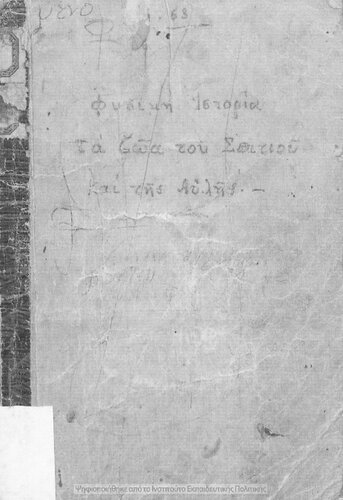 68
Φυσική Ἱστορία
Τά ζῶα τοῦ Σπιτιοῦ
καί τῆς Αὐλῆς. —
Ψηφιοποιήθηκε από το Ινστιτούτο Εκπαιδευτικής Πολιτικής